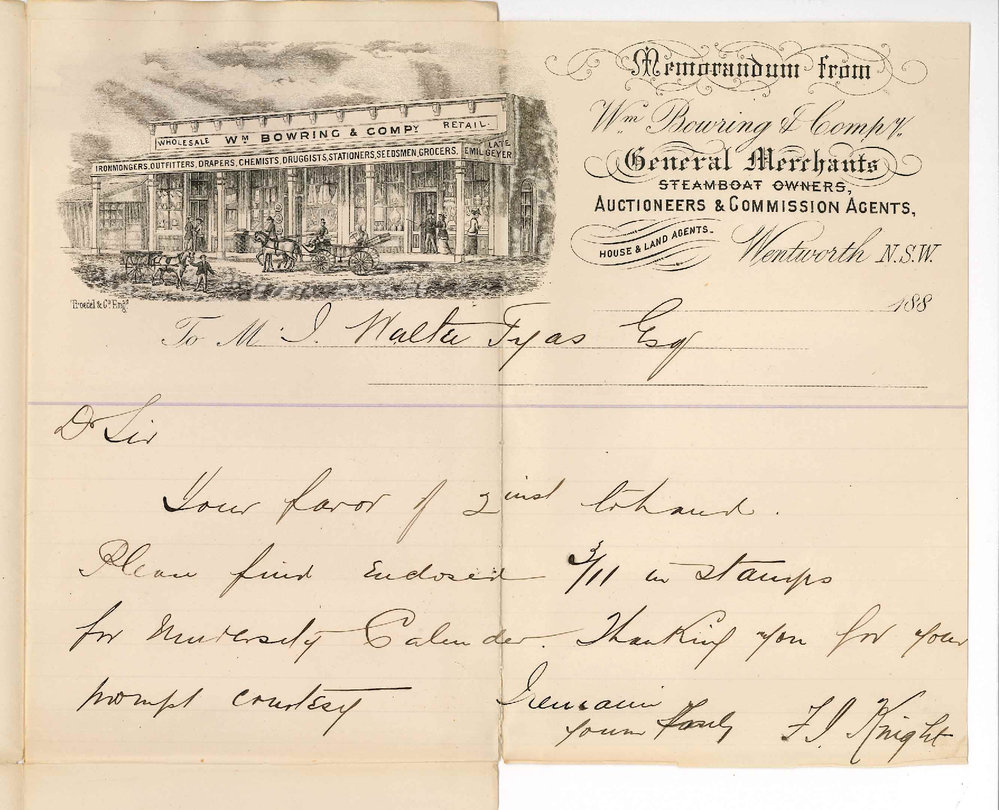 WHOLESALE Wm BOWRING & COMPy RETAIL.
IRONMONGERS, OUTFITTERS, DRAPERS, CHEMISTS, DRUGGISTS, STATIONERS, SEEDSMEN, GROCERS.
LATE
EMIL GEYER
Troedel & Co. Engs
Memorandum from
Wm Bowring & Compy.
General Merchants
STEAMBOAT OWNERS,
AUCTIONEERS & COMMISSION AGENTS,
HOUSE & LAND AGENTS.
Wentworth N.S.W.
188
To Mr J. Walter Tyas Esq
Dr Sir
Your favor of 2 inst to hand.
Please find enclosed 3/11 in stamps
for University Calender. Thanking you for your
prompt courtesy I remain
yours F. J. Knight